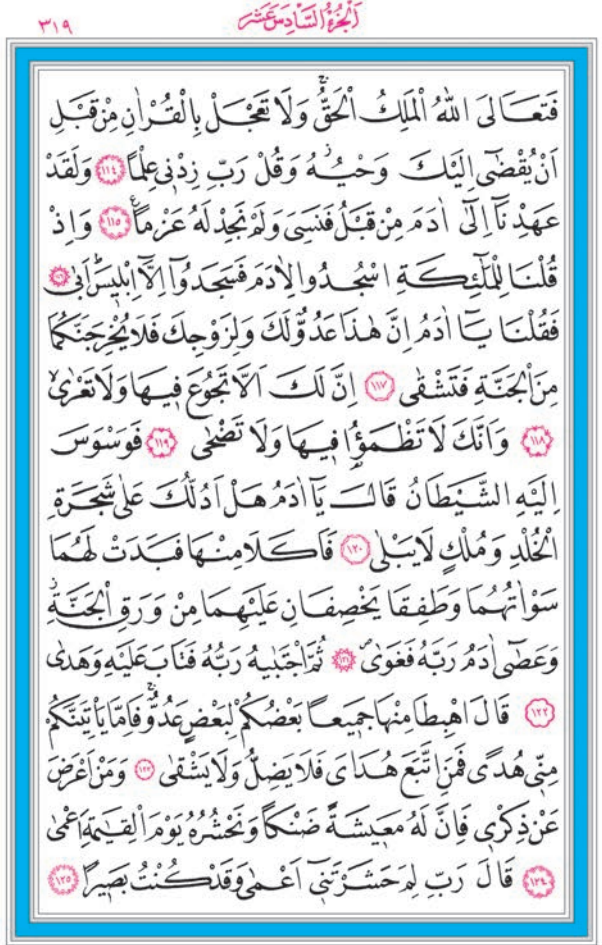 ٣١٩ اَلْجُزْءُ السَّادِسَ عَشَرَ
فَتَعَالَى اللّٰهُ الْمَلِكُ الْحَقُّۚ وَلَا تَعْجَلْ بِالْقُرْاٰنِ مِنْ قَبْلِ
اَنْ يُقْضٰٓى اِلَيْكَ وَحْيُهُۘ وَقُلْ رَبِّ زِدْنٖى عِلْمًا ﴿١١٤﴾ وَلَقَدْ
عَهِدْنَٓا اِلٰٓى اٰدَمَ مِنْ قَبْلُ فَنَسِىَ وَلَمْ نَجِدْ لَهُ عَزْمًاࣖ ﴿١١٥﴾ وَاِذْ
قُلْنَا لِلْمَلٰٓئِكَةِ اسْجُدُوا لِاٰدَمَ فَسَجَدُٓوا اِلَّٓا اِبْلٖيسَؕ اَبٰى ﴿١١٦﴾
فَقُلْنَا يَٓا اٰدَمُ اِنَّ هٰذَا عَدُوٌّ لَكَ وَلِزَوْجِكَ فَلَا يُخْرِجَنَّكُمَا
مِنَ الْجَنَّةِ فَتَشْقٰى ﴿١١٧﴾ اِنَّ لَكَ اَلَّا تَجُوعَ فٖيهَا وَلَا تَعْرٰىۙ
﴿١١٨﴾ وَاَنَّكَ لَا تَظْمَؤُ۬ا فٖيهَا وَلَا تَضْحٰى ﴿١١٩﴾ فَوَسْوَسَ
اِلَيْهِ الشَّيْطَانُ قَالَ يَٓا اٰدَمُ هَلْ اَدُلُّكَ عَلٰى شَجَرَةِ
الْخُلْدِ وَمُلْكٍ لَا يَبْلٰى ﴿١٢٠﴾ فَاَكَلَا مِنْهَا فَبَدَتْ لَهُمَا
سَوْاٰتُهُمَا وَطَفِقَا يَخْصِفَانِ عَلَيْهِمَا مِنْ وَرَقِ الْجَنَّةِؗ
وَعَصٰٓى اٰدَمُ رَبَّهُ فَغَوٰىۖ ﴿١٢١﴾ ثُمَّ اجْتَبٰيهُ رَبُّهُ فَتَابَ عَلَيْهِ وَهَدٰى
﴿١٢٢﴾ قَالَ اهْبِطَا مِنْهَا جَمٖيعًا بَعْضُكُمْ لِبَعْضٍ عَدُوٌّۚ فَاِمَّا يَاْتِيَنَّكُمْ
مِنّٖى هُدًى فَمَنِ اتَّبَعَ هُدَاىَ فَلَا يَضِلُّ وَلَا يَشْقٰى ﴿١٢٣﴾ وَمَنْ اَعْرَضَ
عَنْ ذِكْرٖى فَاِنَّ لَهُ مَعٖيشَةً ضَنْكًا وَنَحْشُرُهُ يَوْمَ الْقِيٰمَةِ اَعْمٰى
﴿١٢٤﴾ قَالَ رَبِّ لِمَ حَشَرْتَنٖٓى اَعْمٰى وَقَدْ كُنْتُ بَصٖيرًا ﴿١٢٥﴾